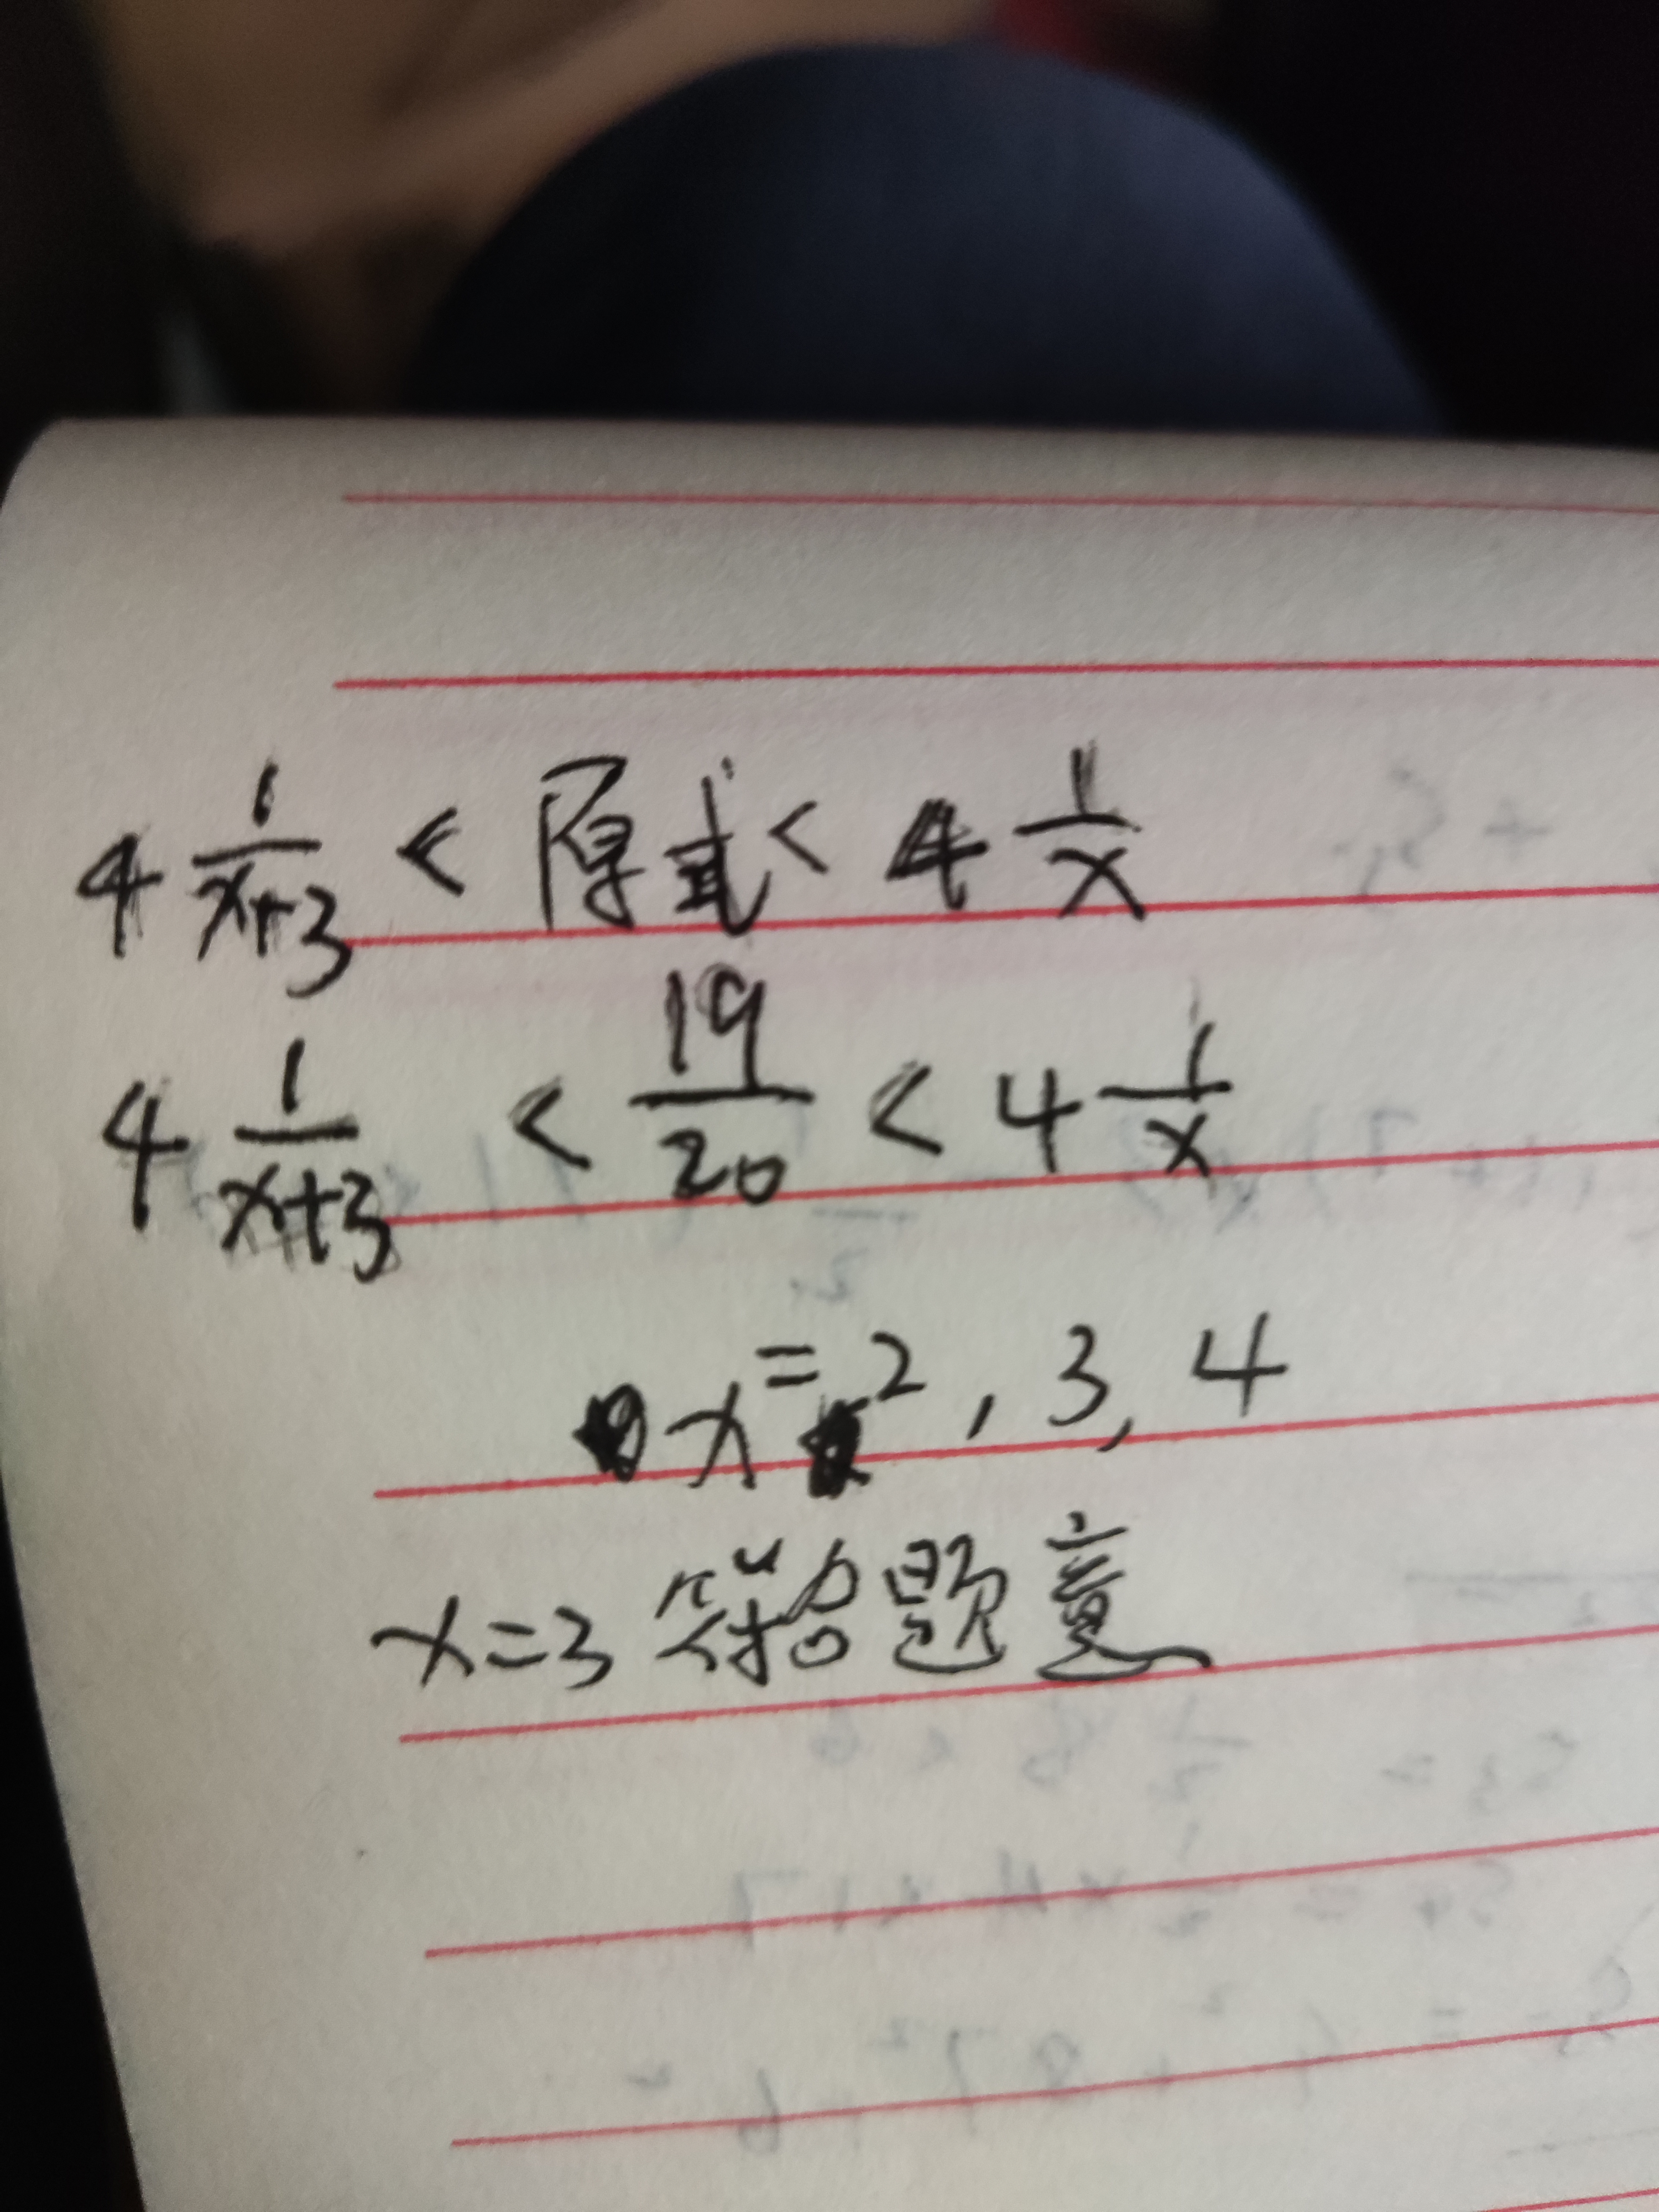 4 1/(x+3) < 原式 < 4 1/x
4 1/(x+3) < 19/20 < 4 1/x
x = 2, 3, 4
x=3 符合题意